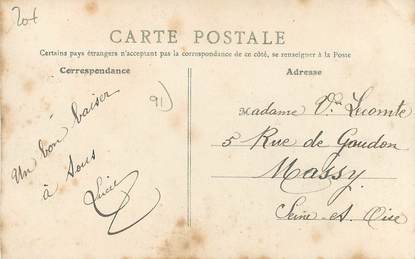 20f
CARTE POSTALE
Certains pays étrangers n'acceptant pas la correspondance de ce côté, se renseigner à la Poste
Correspondance
Adresse
91)
Un bon baiser
à tous
Lucie
Madame Vve Lecomte
5 Rue de Goudon
Massy
Seine-et-Oise